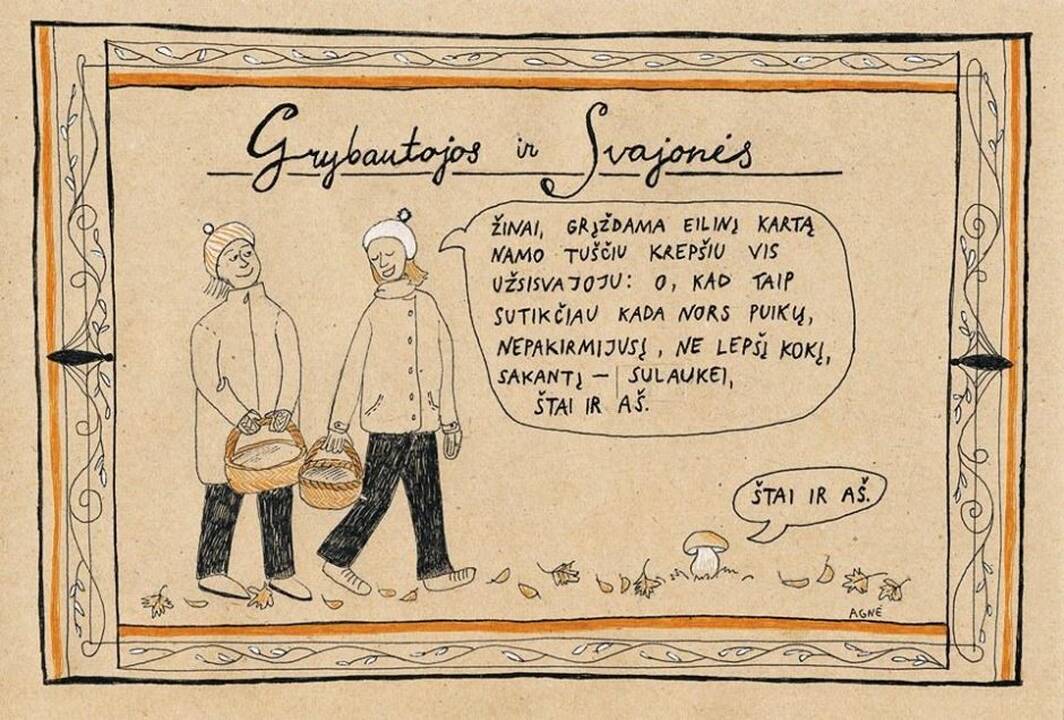 Grybautojos ir Svajonės
ŽINAI, GRĮŽDAMA EILINĮ KARTĄ
NAMO TUŠČIU KREPŠIU VIS
UŽSISVAJOJU: O, KAD TAIP
SUTIKČIAU KADA NORS PUIKŲ,
NEPAKIRMIJUSĮ, NE LEPŠĮ KOKĮ,
SAKANTĮ – SULAUKEI,
ŠTAI IR AŠ.
ŠTAI IR AŠ.
AGNĖ